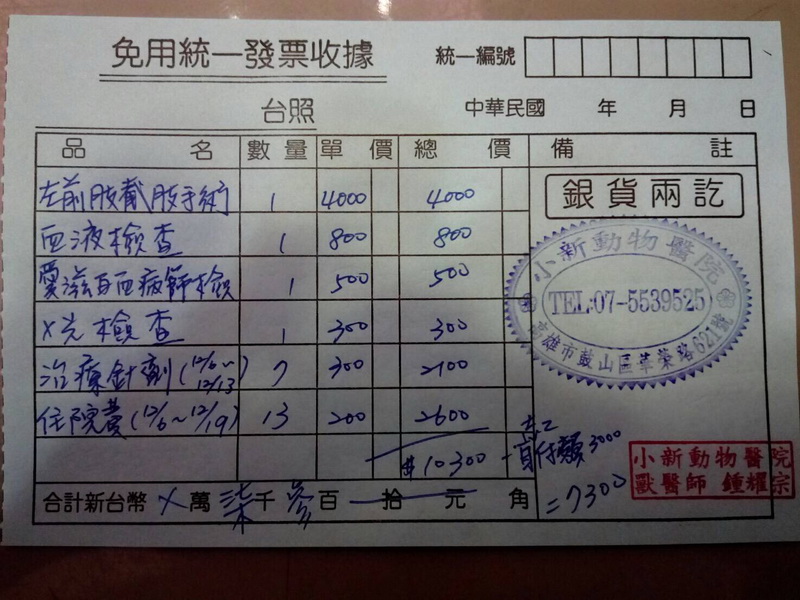 免用統一發票收據
統一編號
台照
中華民國 年 月 日
品名 數量 單價 總價 備註
左前肢截肢手術 1 4000 4000
血液檢查 1 800 800
愛滋白血病篩檢 1 500 500
X光檢查 1 300 300
治療針劑(12/6~12/13) 7 300 2100
住院費(12/6~12/19) 13 200 2600
$10300 - 志工負擔額3000
=7300
合計新台幣 X 萬 柒 千 參 百 拾 元 角
銀貨兩訖
小新動物醫院
TEL:07-5539525
高雄市鼓山區華榮路621號
小新動物醫院
獸醫師 鍾耀宗